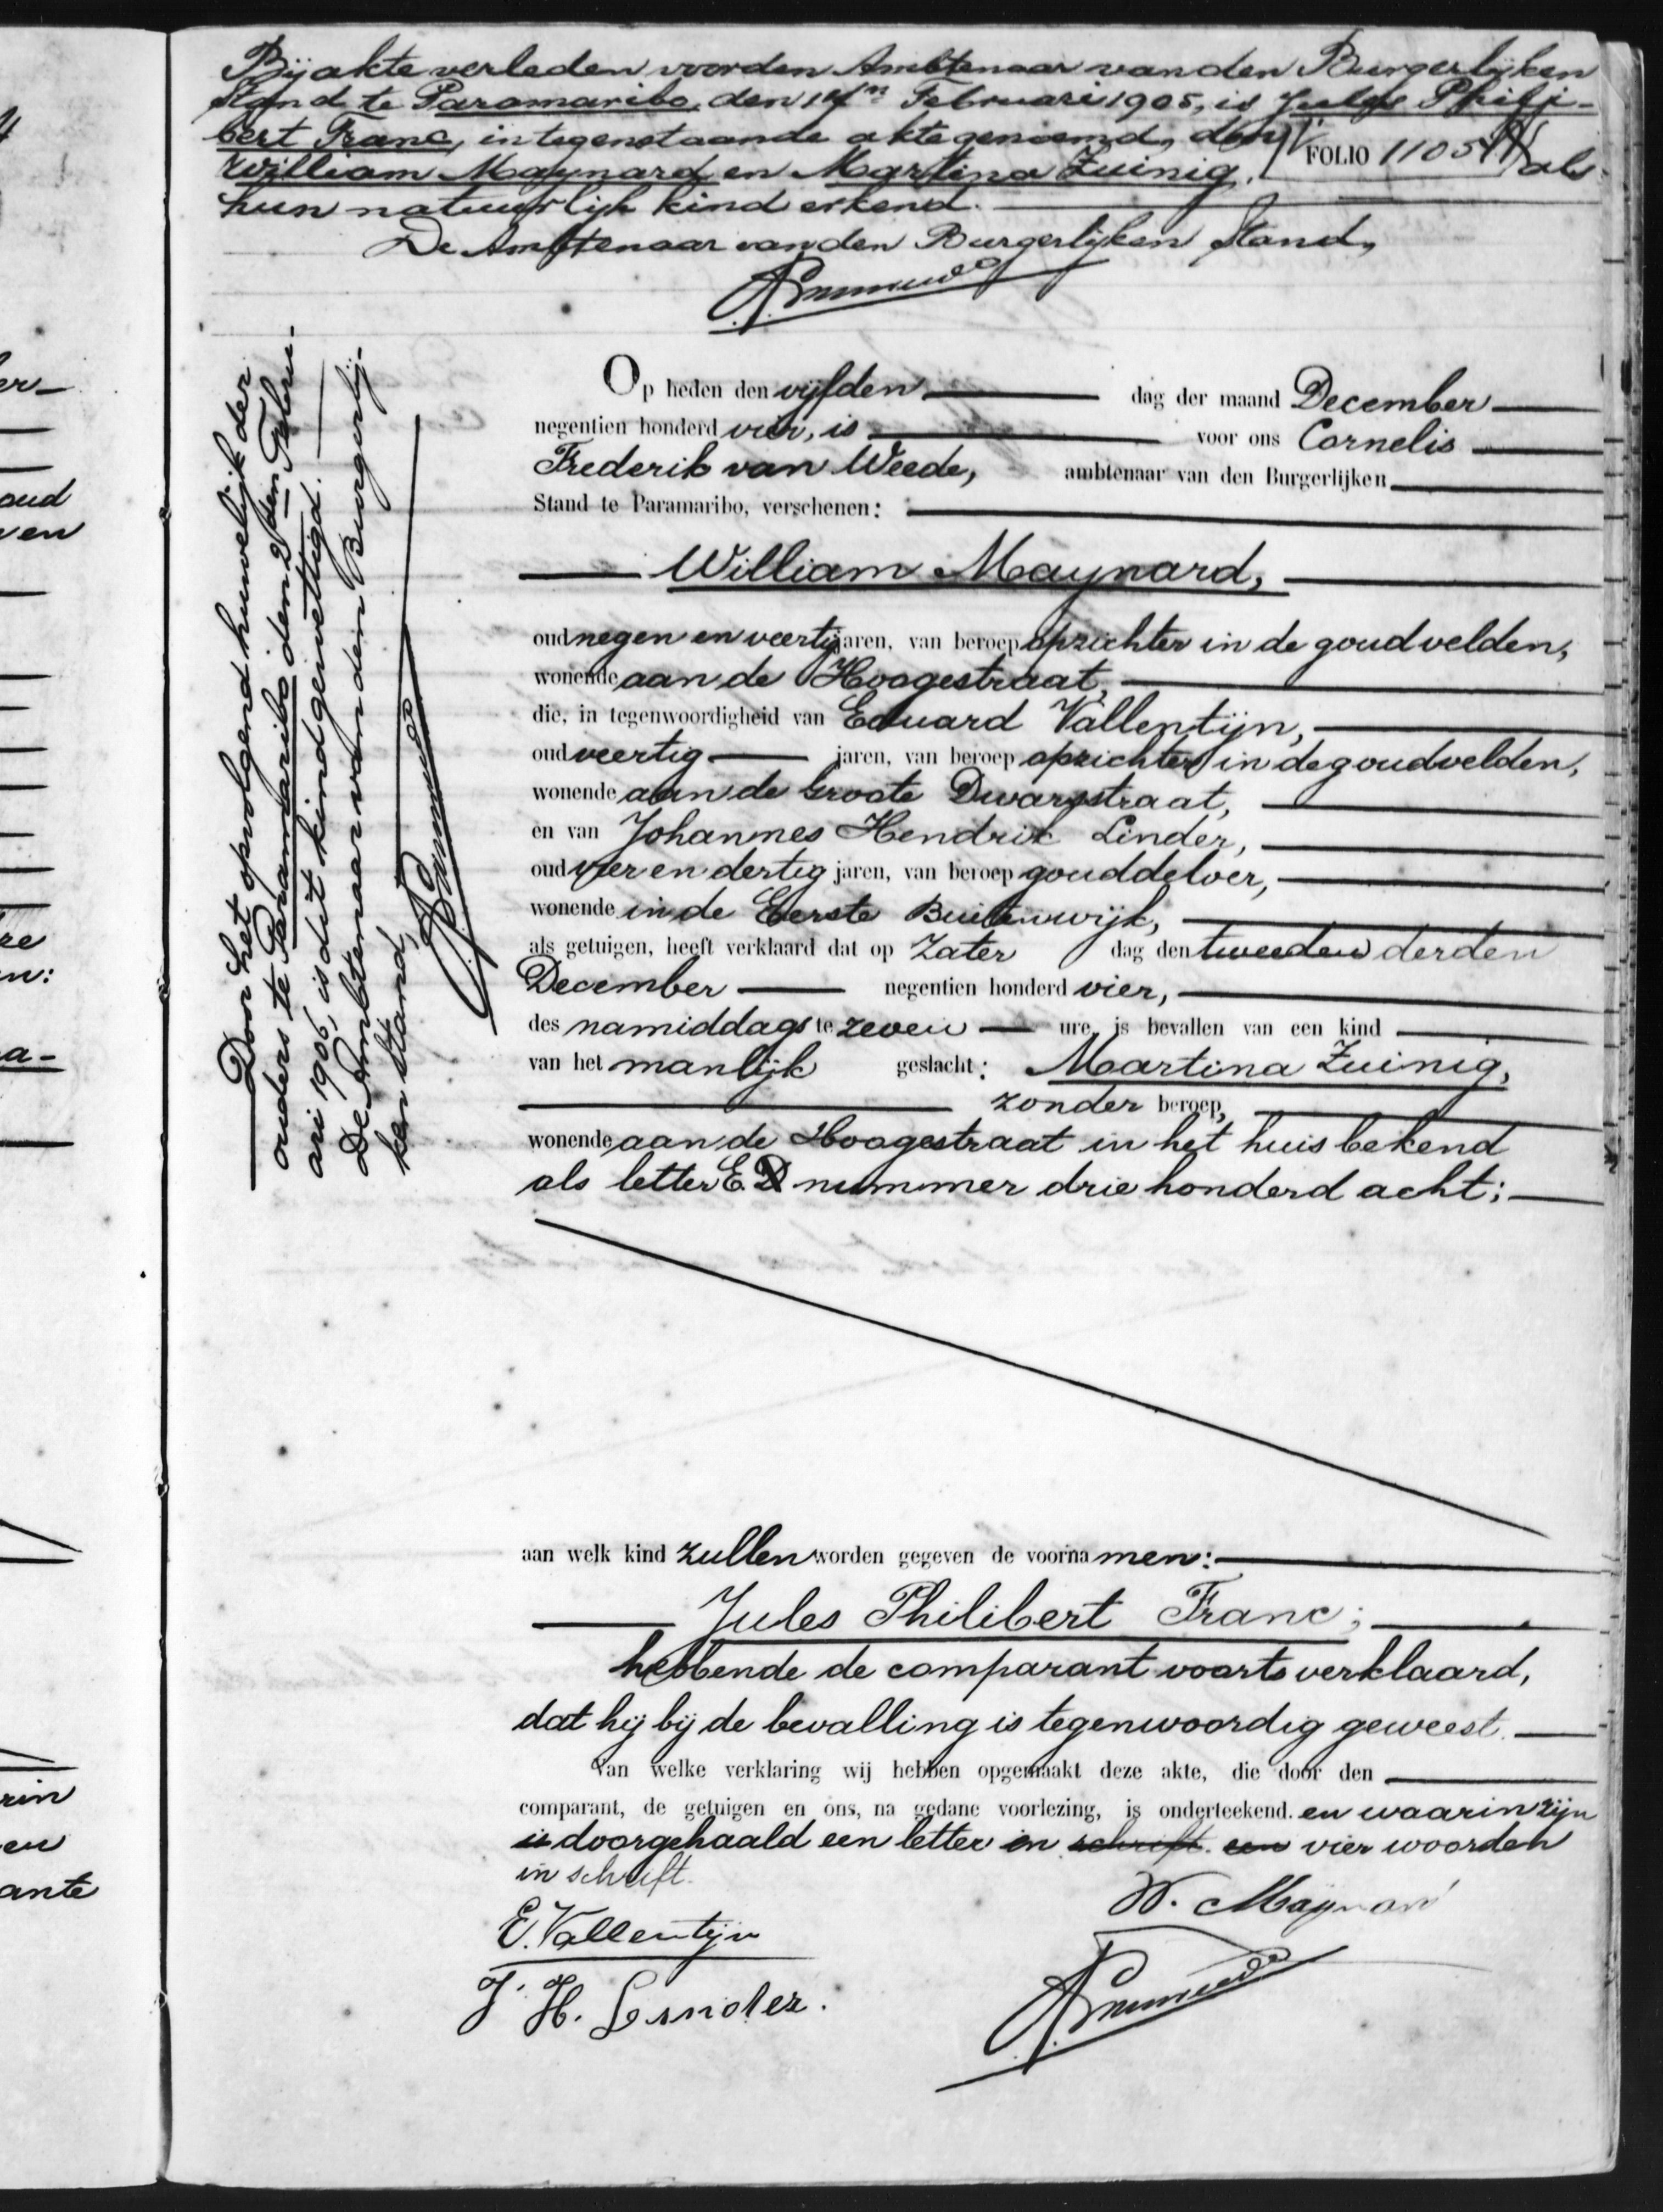 Bij akte verleden voor den Ambtenaar van den Burgerlijken
Stand te Paramaribo, den 14n Februari 1905, is Jules Phili-
bert Franc, in tegenstaande akte genoemd, door
FOLIO 1105
William Maynard en Martina Zuinig, als
hun natuurlijk kind erkend.
De Ambtenaar van den Burgerlijken Stand,
Door het opvolgend huwelijk der
ouders te Paramaribo den 2den Febru-
ari 1906, is dit kind gewettigd.
De Ambtenaar van den Burgerlij-
ken Stand,
Op heden den vijfden dag der maand December
negentien honderd vier, is voor ons Cornelis
Frederik van Weede, ambtenaar van den Burgerlijken
Stand te Paramaribo, verschenen:
William Maynard,
oud negen en veertig jaren, van beroep opzichter in de goudvelden,
wonende aan de Hoogestraat,
die, in tegenwoordigheid van Eduard Vallentijn,
oud veertig jaren, van beroep opzichter in de goudvelden,
wonende aan de Groote Dwarsstraat,
en van Johannes Hendrik Linder,
oud vier en dertig jaren, van beroep gouddelver,
wonende in de Eerste Buitenwijk,
als getuigen, heeft verklaard dat op Zater dag den tweeden derden
December negentien honderd vier,
des namiddags te zeven ure, is bevallen van een kind
van het manlijk geslacht: Martina Zuinig,
zonder beroep,
wonende aan de Hoogestraat in het huis bekend
als letter E. D nummer drie honderd acht;
aan welk kind zullen worden gegeven de voornamen:
Jules Philibert Franc;
hebbende de comparant voorts verklaard,
dat hij bij de bevalling is tegenwoordig geweest.
Van welke verklaring wij hebben opgemaakt deze akte, die door den
comparant, de getuigen en ons, na gedane voorlezing, is onderteekend. en waarin zijn
is doorgehaald een letter in schrift. een vier woorden
in schrift.
W. Maynard
E. Vallentijn
J. H. Linder.